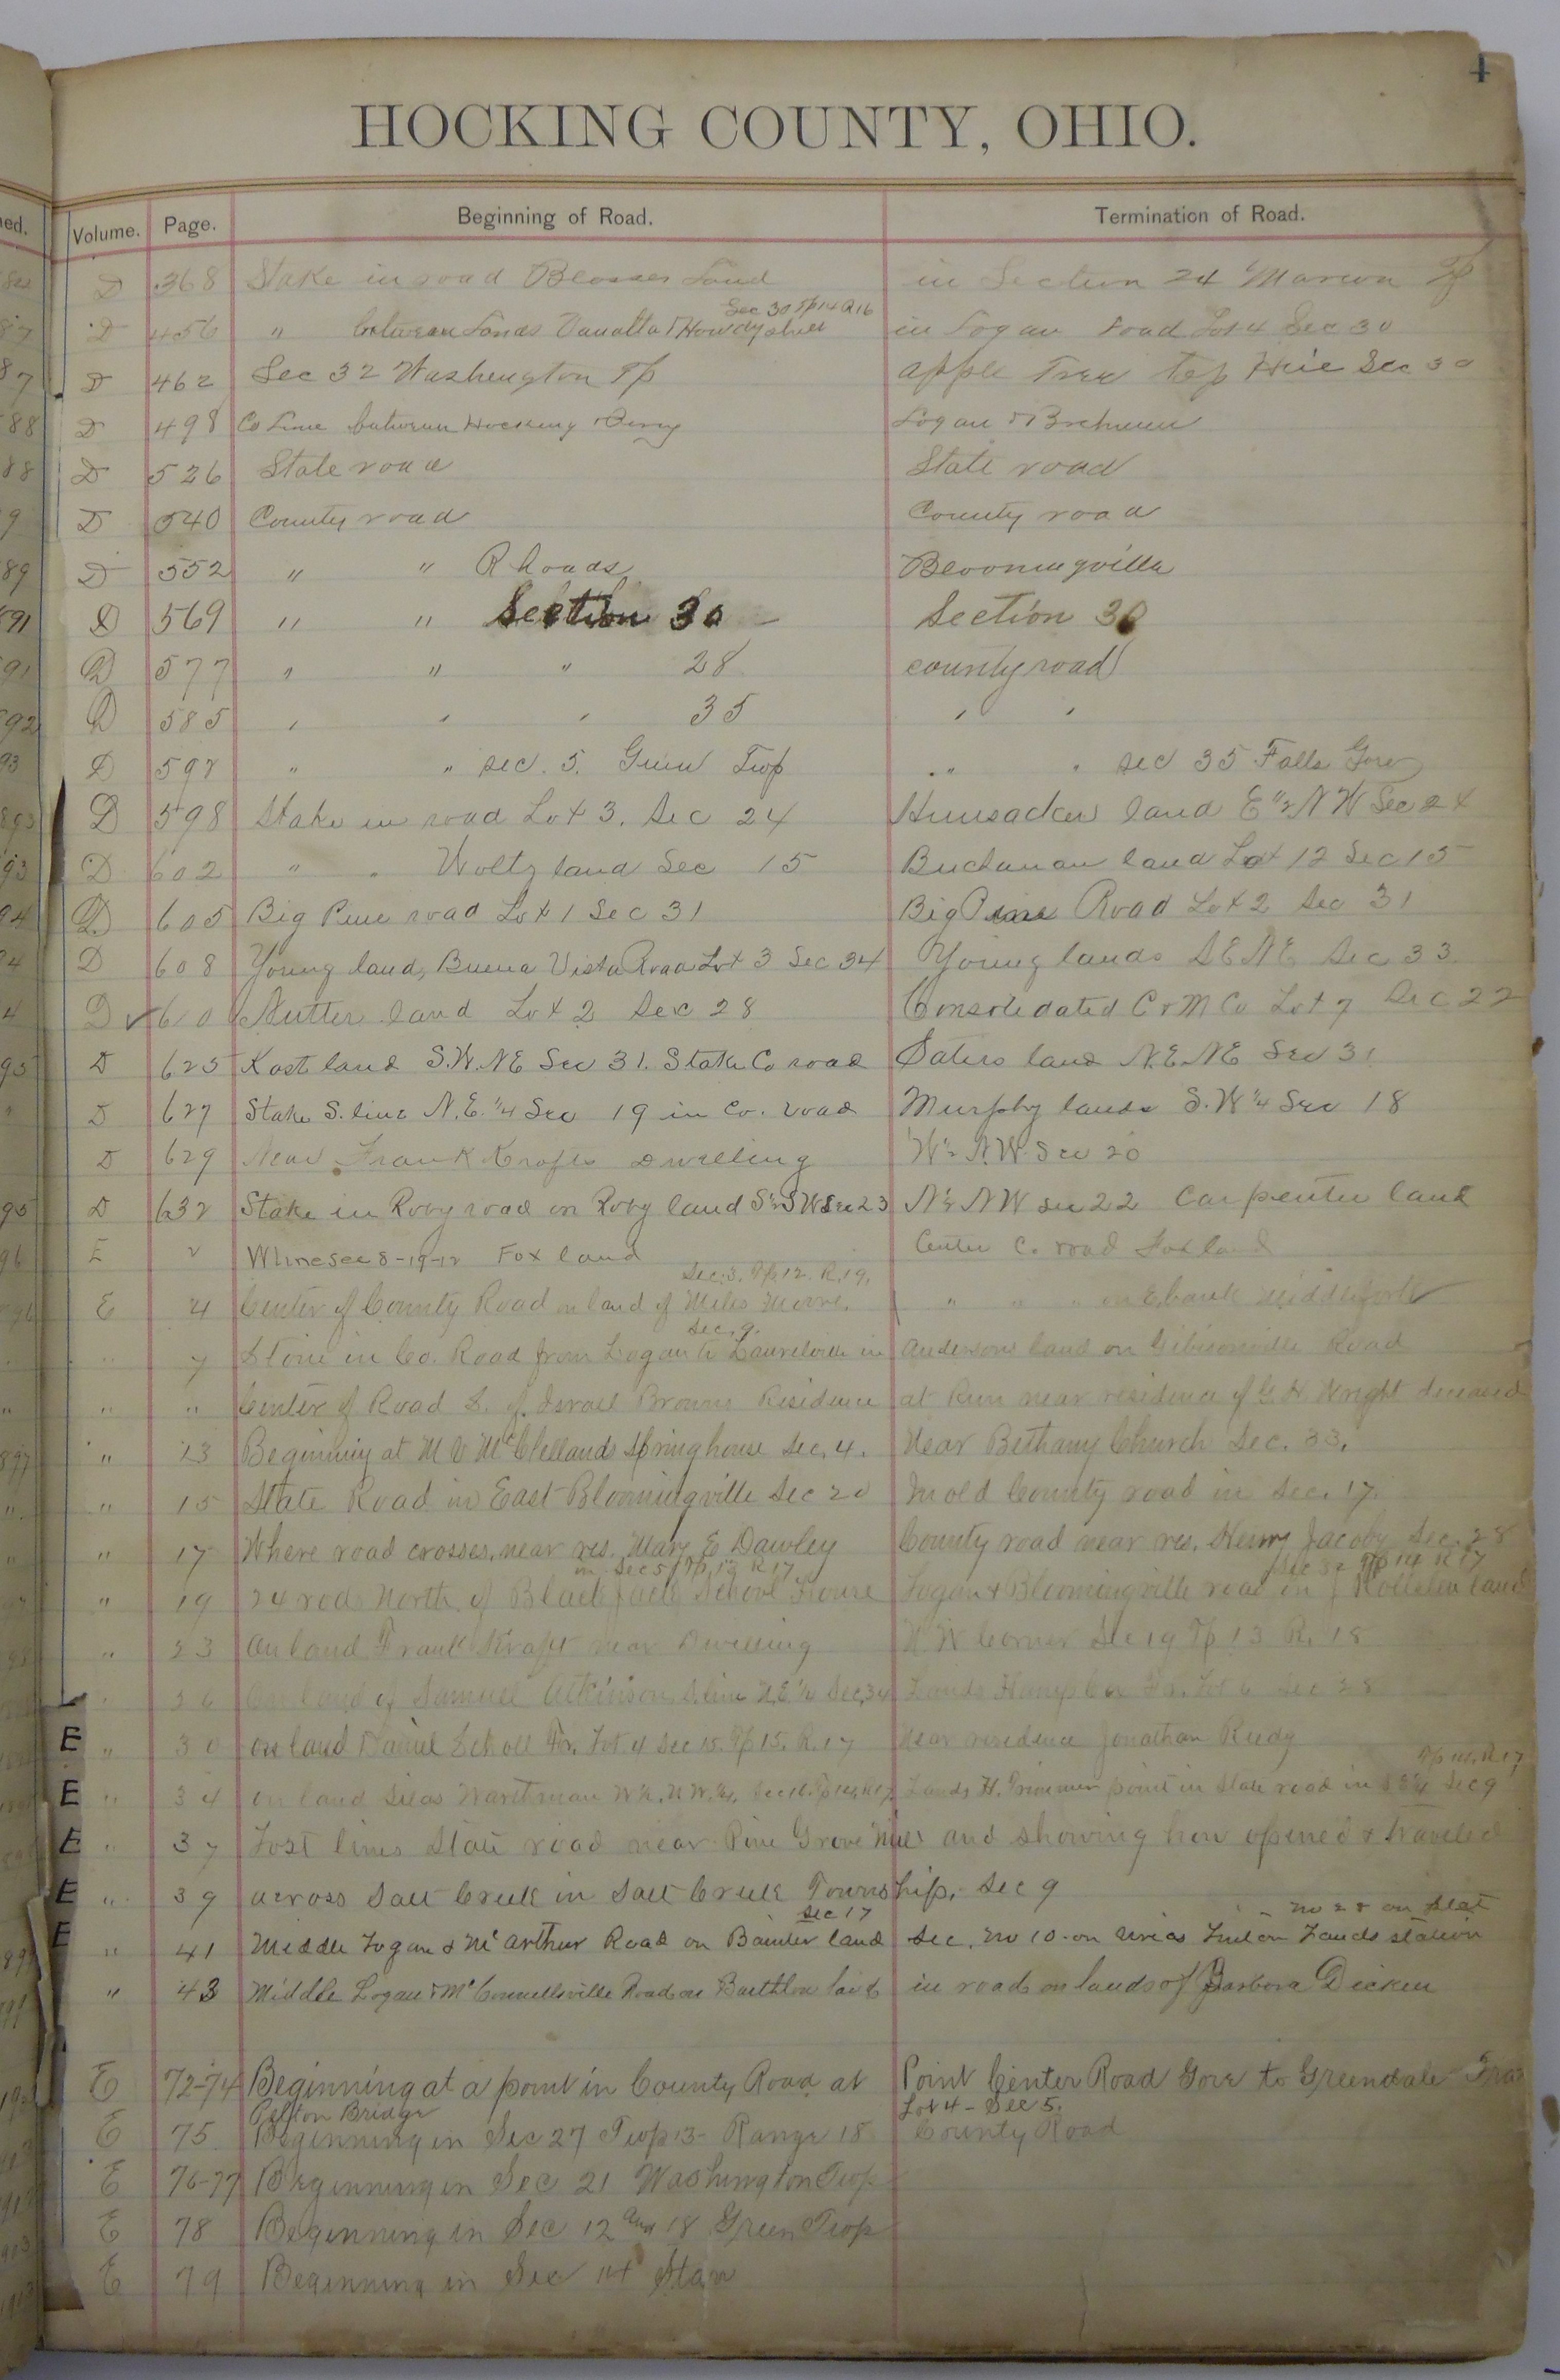 4
HOCKING COUNTY, OHIO.
Volume. Page. Beginning of Road. Termination of Road.
D 368 Stake in road Blosser Land in Section 24 Marion Tp
Sec 30 Tp 14 R 16
D 456 " between Lands Vanatta & Howdyshell in Logan road Lot 4 Sec 30
D 462 Sec 32 Washington Tp apple Tree Sec 30
D 498 Co Line between Hocking & Perry Logan & Bremen
D 526 State road State road
D 540 County road County road
D 552 " " Rhoads Bloomingville
D 569 " " Section 30 Section 30
D 577 " " " 28 county road
D 585 " " " 35 " "
D 597 " " sec. 5. Green Twp " " sec 35 Falls Gore
D 598 Stake in road Lot 3. Sec 24 Hunsacker land E 1/2 N W Sec 24
D 602 " " Woltz land Sec 15 Buchanan land Lot 12 Sec 15
D 605 Big Pine road Lot 1 Sec 31 Big Pine Road Lot 2 Sec 31
D 608 Young land, Buena Vista Road Lot 3 Sec 34 Young lands S E N E Sec 33
D ✓ 610 Nutter land Lot 2 Sec 28 Consolidated C & M Co Lot 7 Sec 22
D 625 Kast land S.W. NE Sec 31. Stake Co road land N.E. NE Sec 31
D 627 Stake S. line N.E. 1/4 Sec 19 in Co. road Murphy lands S.W 1/4 Sec 18
D 629 Near Frank Krafts Dwelling W 1/2 N.W. Sec 20
D 632 Stake in Roby road on Roby land S 1/2 SW Sec 23 N 1/2 NW sec 22 Carpenter land
E 2 W line sec 8-19-12 Fox land Center C. road Fox land
Sec. 3. Tp. 12. R. 19.
E 4 Center of County Road on land of Miles Moore. " " " on E. bank Middlefork
Sec. 9.
" 7 Stone in Co. Road from Logan to Laurelville in Andersons land on Gibisonville Road
" " Center of Road S. of Israel Browns Residence at Run near residence of G. H. Wright deceased
" 13 Beginning at M V McClellands Springhouse Sec. 4. Near Bethany Church Sec. 33.
" 15 State Road in East Bloomingville Sec 20 In old County road in Sec. 17.
" 17 Where road crosses, near res. Mary E Dawley County road near res. Henry Jacoby Sec. 28
in Sec 5 Tp. 13 R 17 Sec 32 Tp 14 R 17
" 19 24 rods North of Black Jack School House Logan & Bloomingville road on J land
" 23 On land Frank Kraft near Dwelling N. W Corner Sec 19 Tp 13 R. 18
" 26 On land of Samuel Atkinson, S. line N.E. 1/4 Sec. 34 Lands Lot 6 Sec 28
E " 30 on land Daniel Scholl Fr. Lot 4 Sec 15. Tp 15. R. 17 Near residence Jonathan Rudy
Tp 14, R 17
E " 34 on land Silas Warthman W 1/2. N W. 1/4. Sec 16. Tp 14, R 17 Lands H. Trimmer point in State road in S E 1/4 Sec 9
E " 37 Lost lines State road near Pine Grove Mills and showing how opened & traveled
E " 39 across Salt Creek in Salt Creek Township, Sec 9
Sec 17 no 28 on plat
E " 41 Middle Logan & McArthur Road on land Sec. No 10 on Linton Lands station
" 43 Middle Logan & McConnellsville Road on land in road on lands of Barbora Dicken
E 72-74 Beginning at a point in County Road at Point Center Road Gore to Greendale
Pelton Bridge Lot 4 - Sec 5.
E 75 Beginning in Sec 27 Twp 13- Range 18 County Road
E 76-77 Beginning in Sec 21 Washington Twp
E 78 Beginning in Sec 12 and 18 Green Twp
E 79 Beginning in Sec 14 Starr